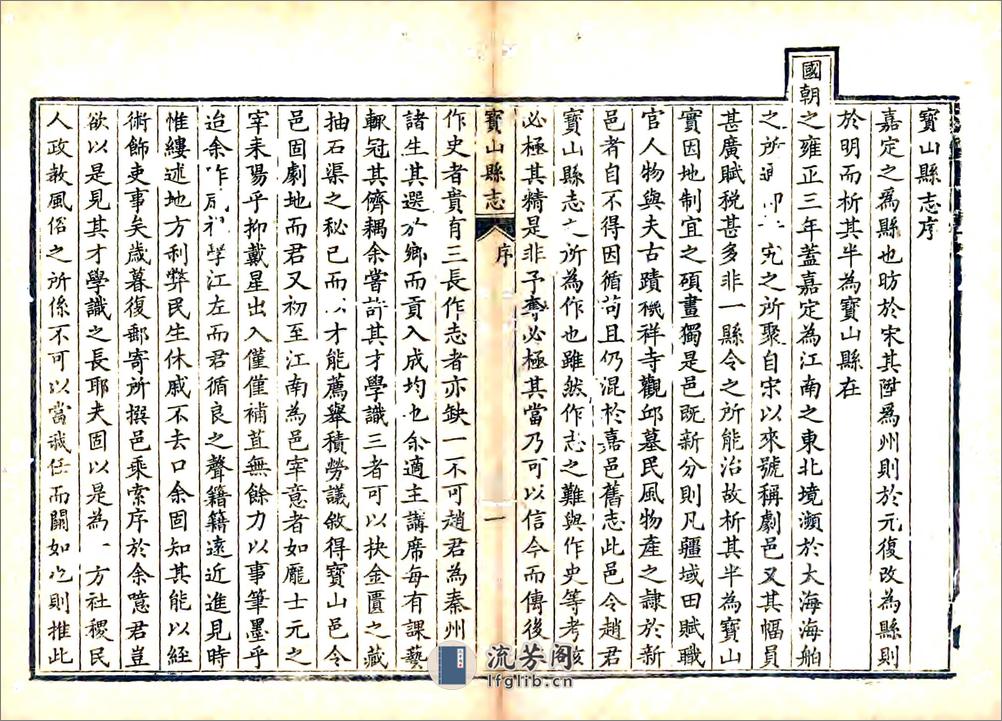 寶山縣志序
嘉定之爲縣也昉於宋其陞爲州則於元復改為縣則
於明而析其半為寶山縣在
國朝之雍正三年蓋嘉定為江南之東北境瀕於大海海舶
之所之所聚自宋以來號稱劇邑又其幅員
甚廣賦稅甚多非一縣令之所能治故析其半為寶山
實因地制宜之碩畫獨是邑既新分則凡疆域田賦職
官人物與夫古蹟禨祥寺觀邱墓民風物產之隸於新
邑者自不得因循苟且仍混於嘉邑舊志此邑令趙君
寶山縣志之所為作也雖然作志之難與作史等考
必極其精是非予奪必極其當乃可以信今而傳後
寶山縣志
序
一
作史者貴有三長作志者亦缺一不可趙君為秦州
諸生其選於鄉而貢入成均也余適主講席每有課藝
輒冠其儕耦余嘗許其才學識三者可以抉金匱之藏
抽石渠之秘已而以才能薦舉積勞議敘得寶山邑令
邑固劇地而君又初至江南為邑宰意者如龐士元之
宰耒陽乎抑戴星出入僅僅補苴無餘力以事筆墨乎
迨余學江左而君循良之聲籍籍遠近進見時
惟縷述地方利弊民生休戚不去口余固知其能以經
術飾吏事矣歲暮復郵寄所撰邑乘索序於余噫君豈
欲以是見其才學識之長耶夫固以是為一方社稷民
人政教風俗之所係不可以當我任而闕如也則推此
流芳阁
lfglib.cn